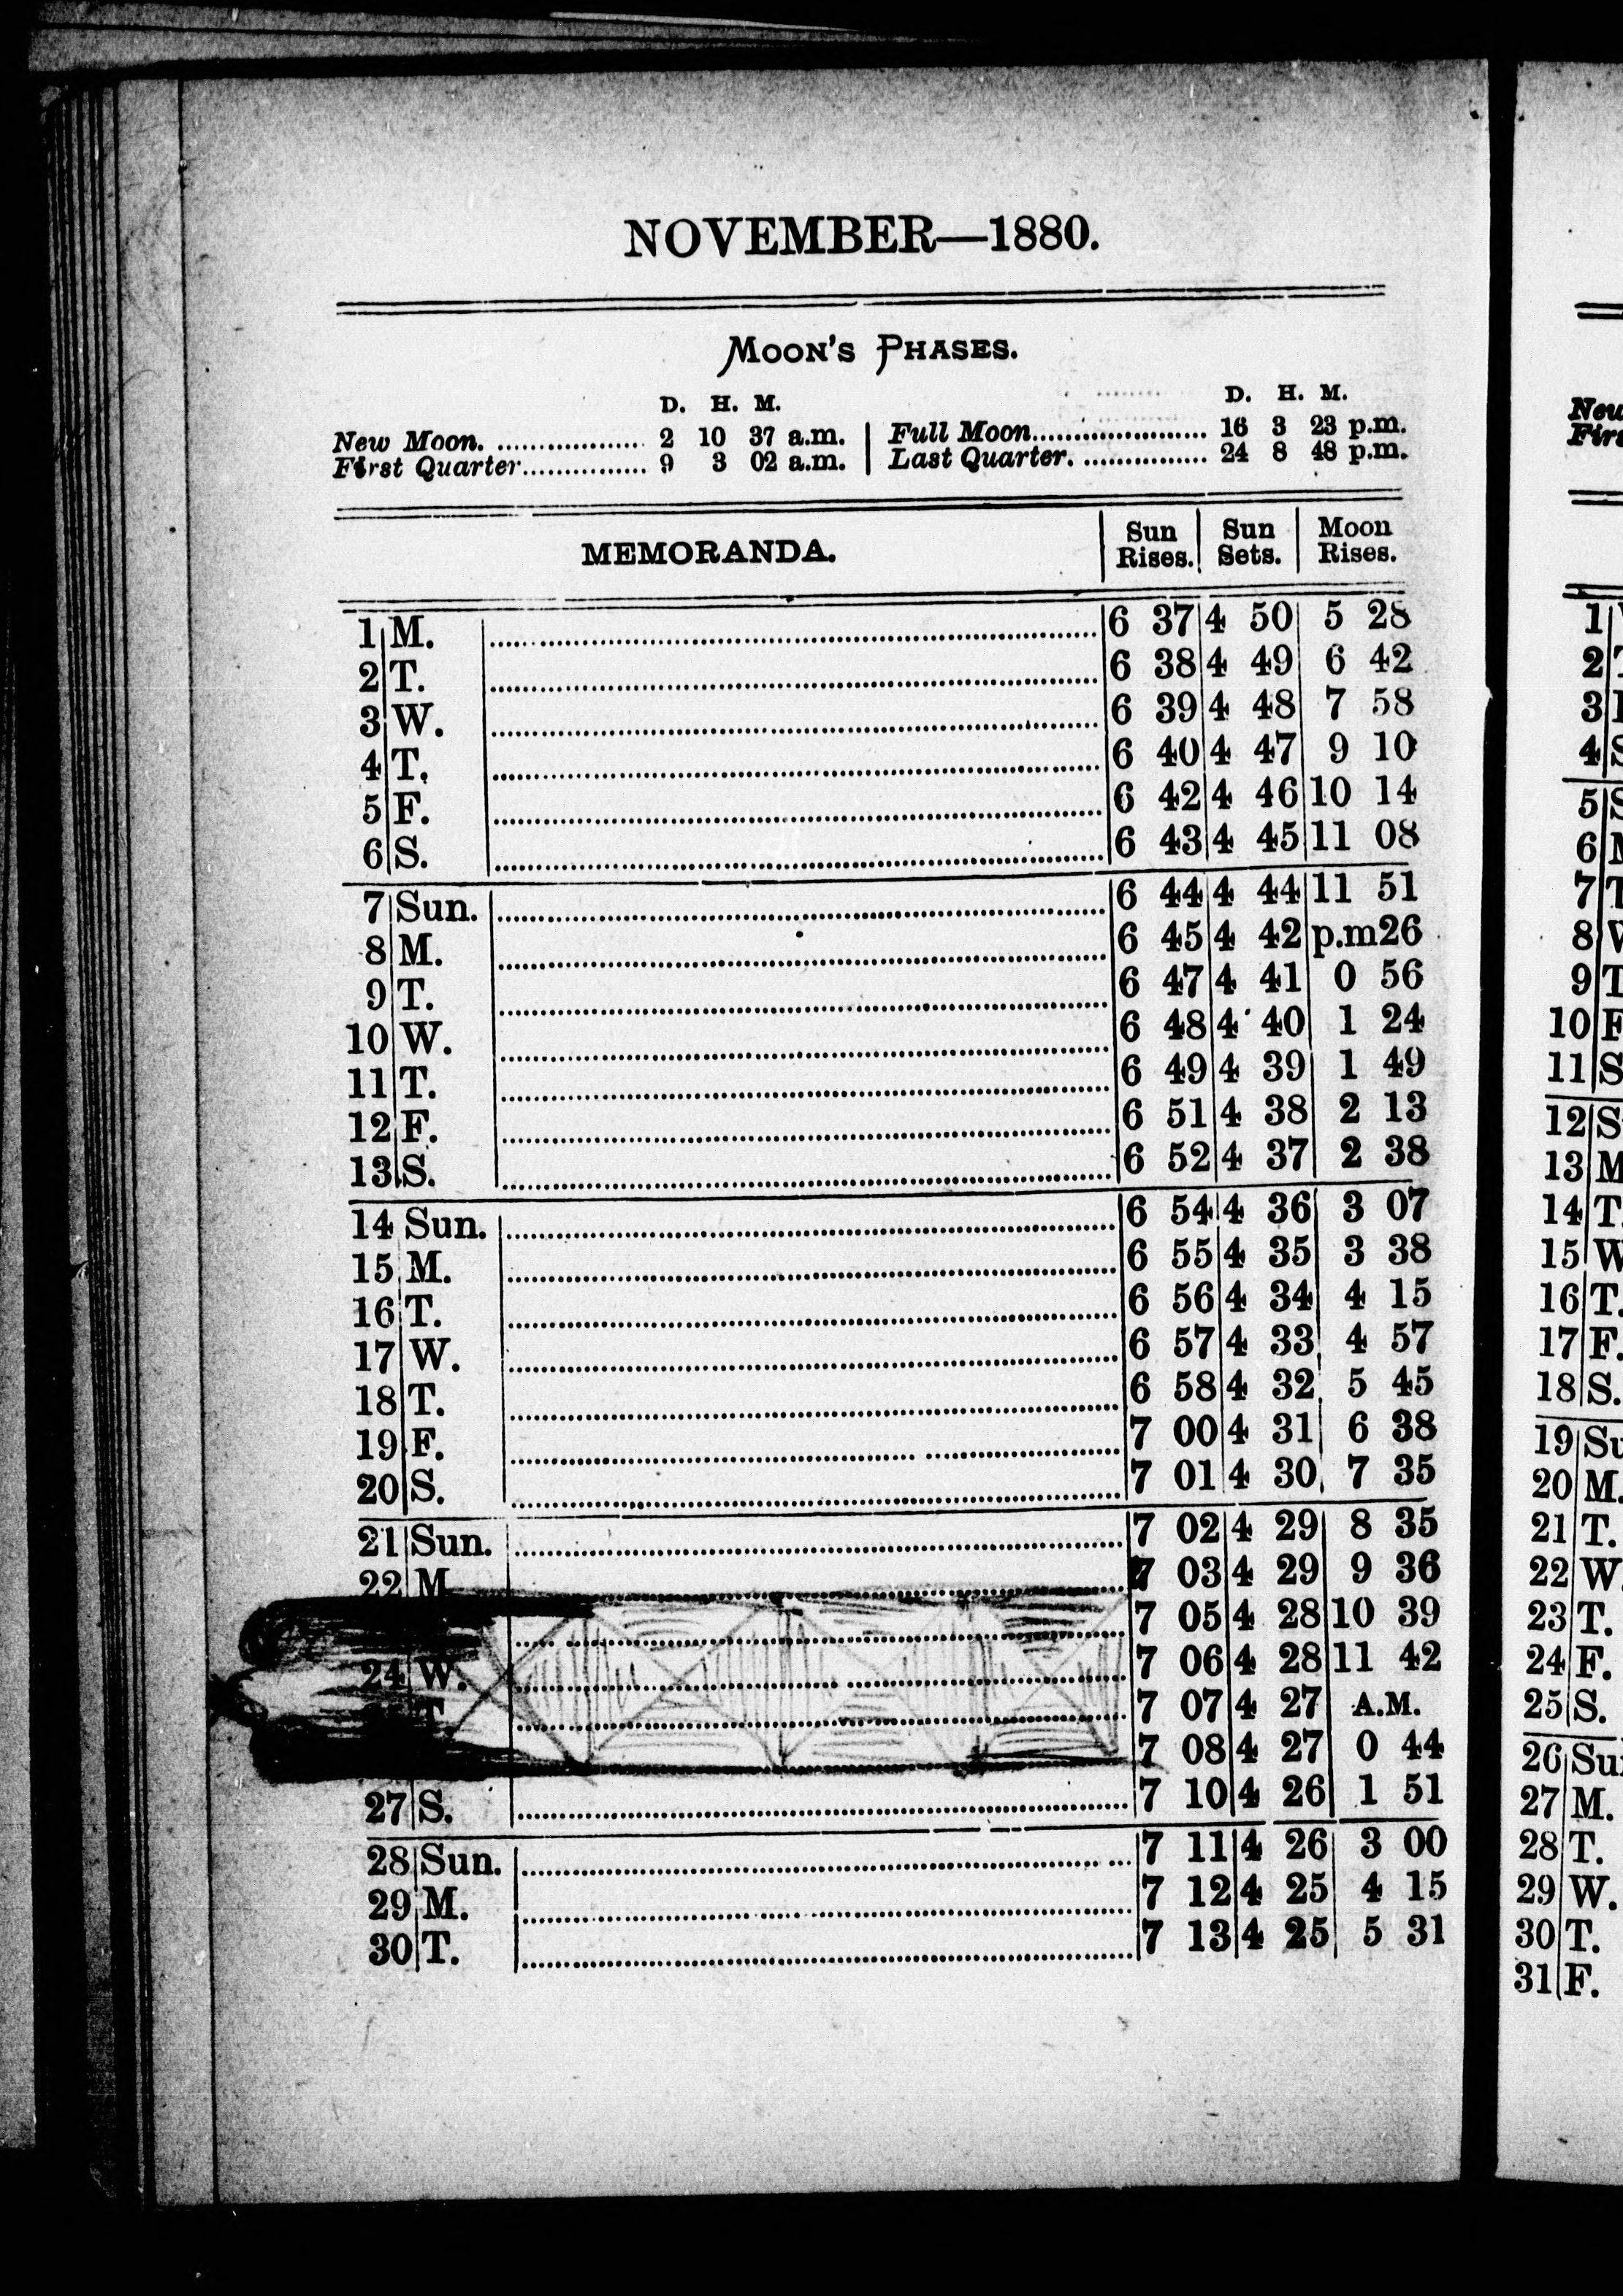 NOVEMBER—1880.
MOON'S PHASES.
D. H. M. D. H. M.
New Moon. .................. 2 10 37 a.m. | Full Moon..................... 16 3 23 p.m.
First Quarter............... 9 3 02 a.m. | Last Quarter. ............... 24 8 48 p.m.
MEMORANDA. Sun Rises. Sun Sets. Moon Rises.
1 M. 6 37 4 50 5 28
2 T. 6 38 4 49 6 42
3 W. 6 39 4 48 7 58
4 T. 6 40 4 47 9 10
5 F. 6 42 4 46 10 14
6 S. 6 43 4 45 11 08
7 Sun. 6 44 4 44 11 51
8 M. 6 45 4 42 p.m26
9 T. 6 47 4 41 0 56
10 W. 6 48 4 40 1 24
11 T. 6 49 4 39 1 49
12 F. 6 51 4 38 2 13
13 S. 6 52 4 37 2 38
14 Sun. 6 54 4 36 3 07
15 M. 6 55 4 35 3 38
16 T. 6 56 4 34 4 15
17 W. 6 57 4 33 4 57
18 T. 6 58 4 32 5 45
19 F. 7 00 4 31 6 38
20 S. 7 01 4 30 7 35
21 Sun. 7 02 4 29 8 35
22 M. 7 03 4 29 9 36
7 05 4 28 10 39
24 W. 7 06 4 28 11 42
T. 7 07 4 27 A.M.
7 08 4 27 0 44
27 S. 7 10 4 26 1 51
28 Sun. 7 11 4 26 3 00
29 M. 7 12 4 25 4 15
30 T. 7 13 4 25 5 31
New
Firs
1
2
3
4 S
5 S
6 M
7 T
8 W
9 T
10 F
11 S
12 S
13 M
14 T.
15 W
16 T.
17 F.
18 S.
19 Su
20 M.
21 T.
22 W
23 T.
24 F.
25 S.
26 Su
27 M.
28 T.
29 W.
30 T.
31 F.